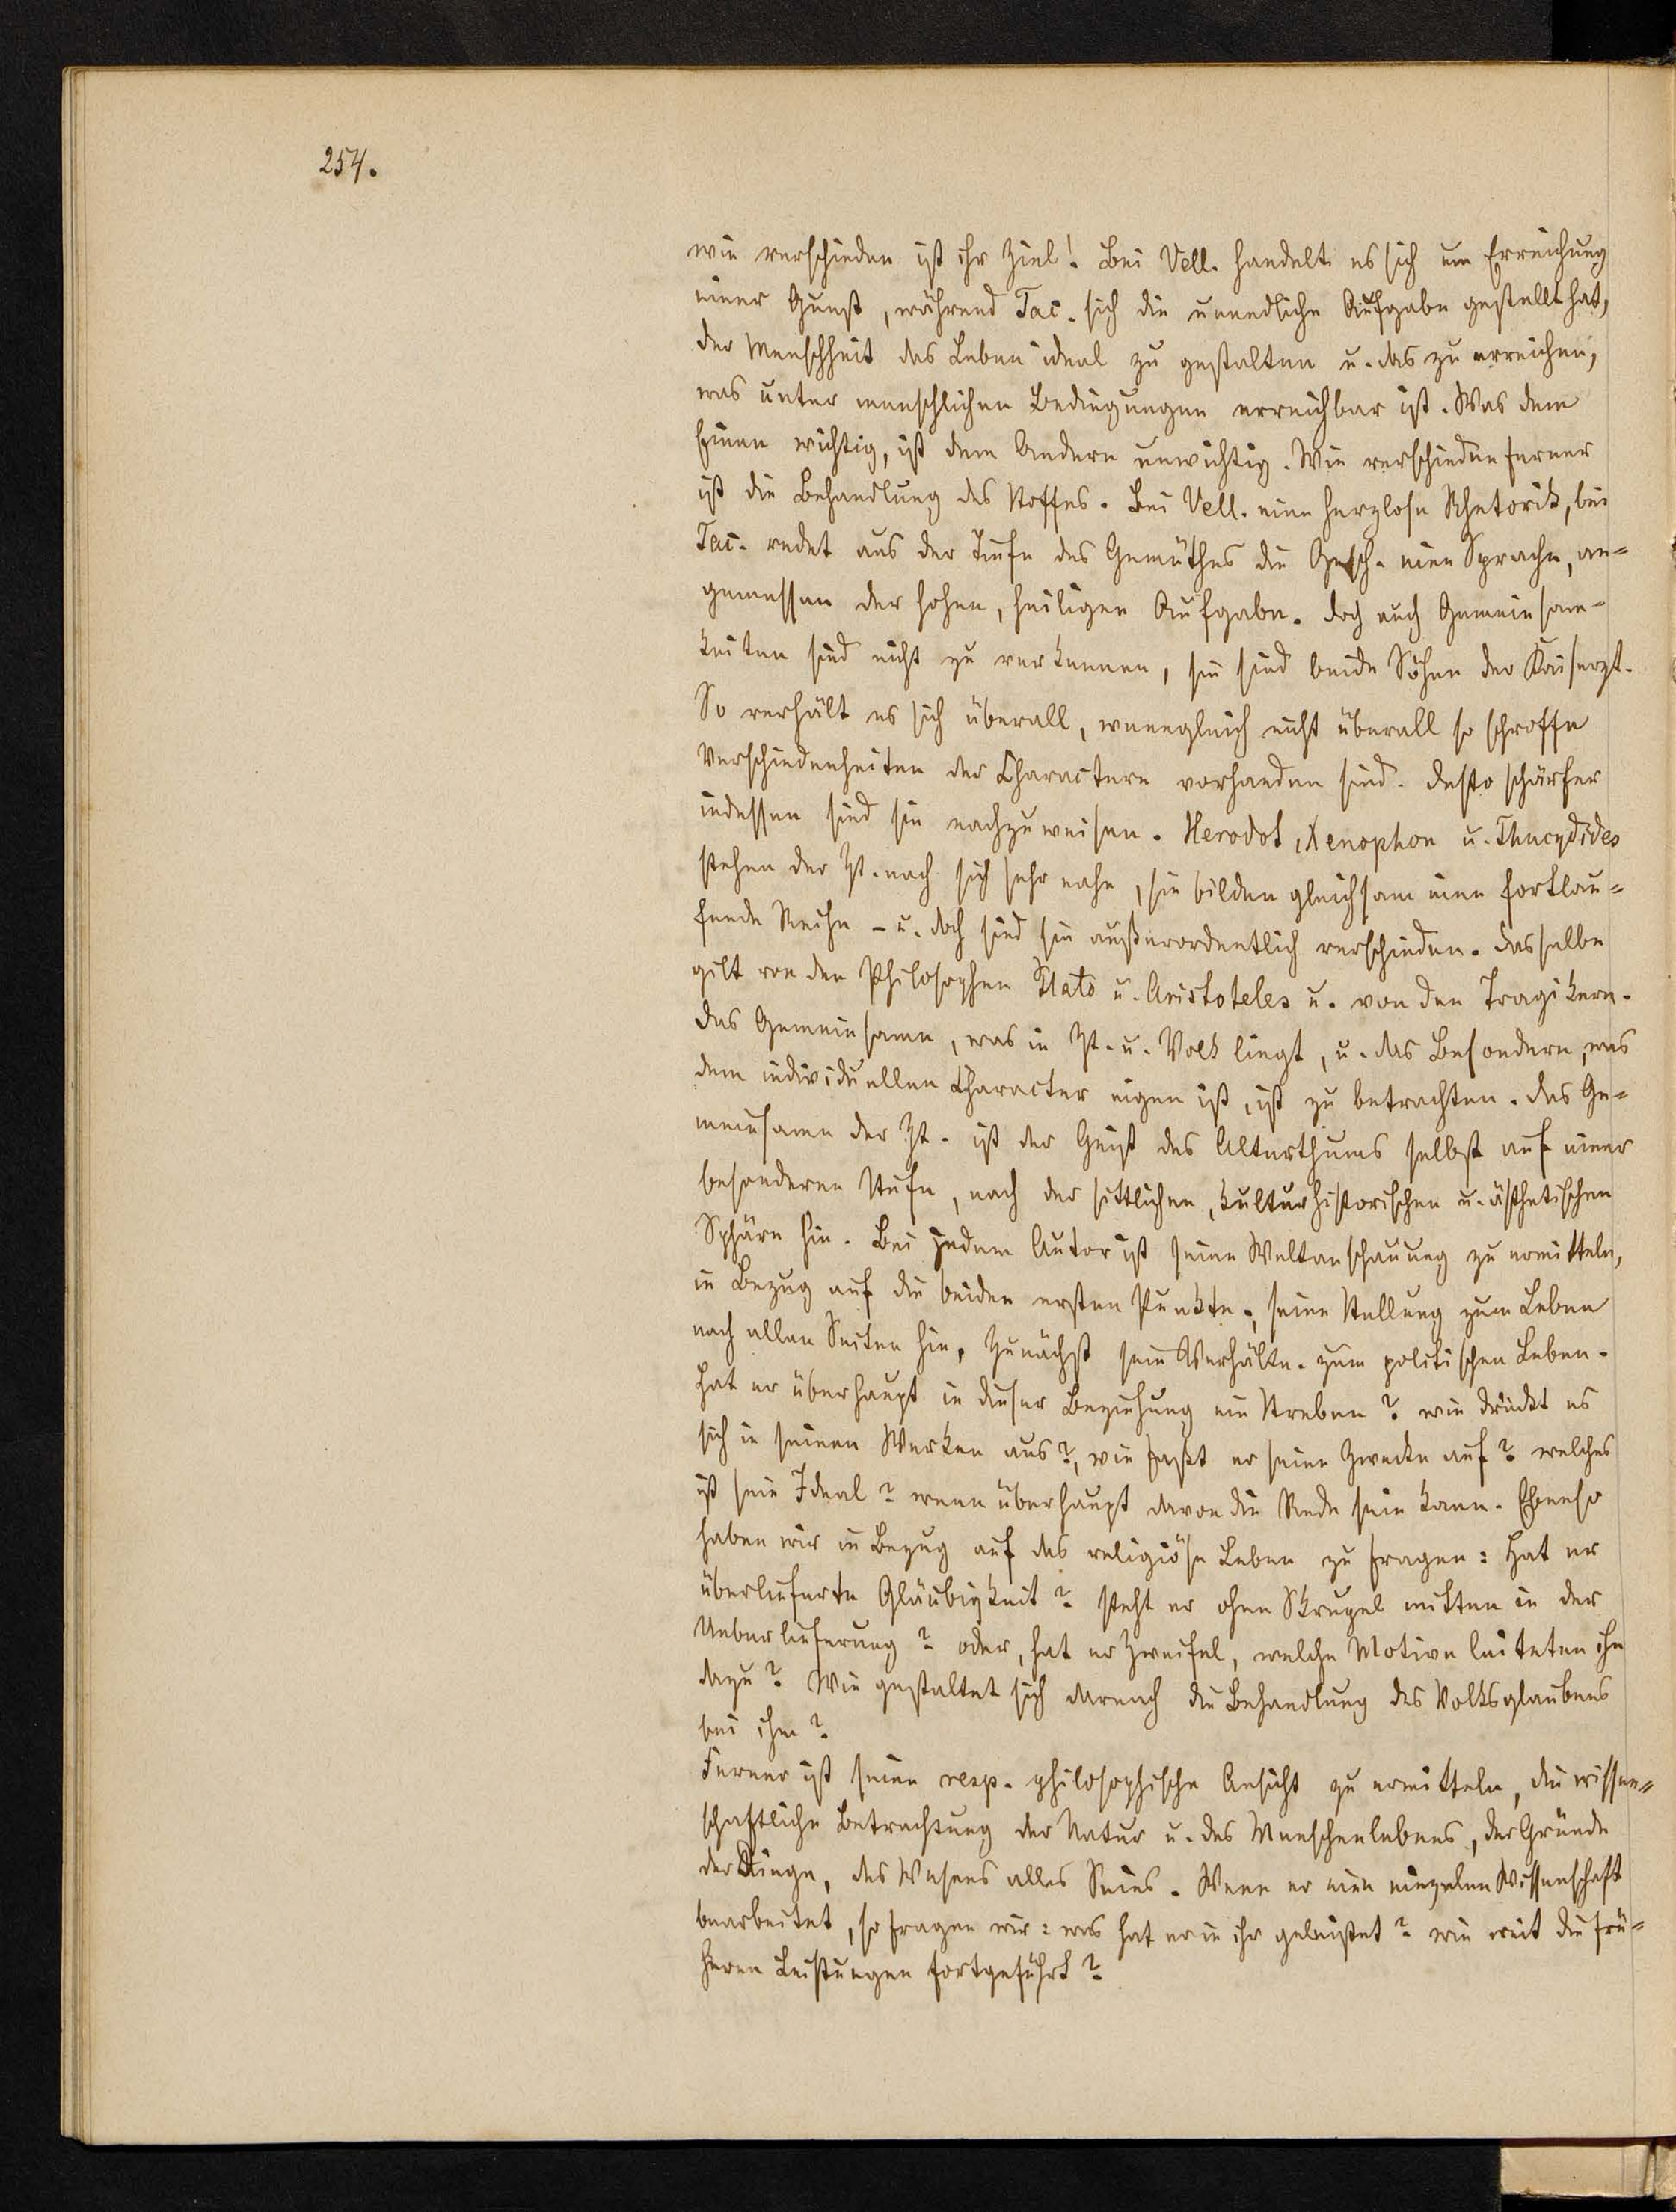 254.
wie verschieden ist ihr Ziel! Bei Vell. handelt es sich um Erreichung
einer Gunst, während Tac. sich die unendliche Aufgabe gestellt hat,
der Menschheit das Leben ideal zu gestalten u. das zu erreichen,
was unter menschlichen Bedingungen erreichbar ist. Was dem
Einen wichtig, ist dem Andern unwichtig. Wie verschieden ferner
ist die Behandlung des Stoffes. Bei Vell. eine herzlose Rhetorik, bei
Tac. redet aus der Tiefe des Gemüthes die Gesch. eine Sprache, an=
gemessen der hohen, heiligen Aufgabe. Doch auch Gemeinsam-
keiten sind nicht zu verkennen, sie sind beide Söhne der Kaiserzt.
So verhält es sich überall, wenngleich nicht überall so schroffe
Verschiedenheiten der Charactere vorhanden sind. Desto schärfer
indessen sind sie nachzuweisen. Herodot, Xenophon u. Thucydides
stehen der Zt. nach sich sehr nahe, sie bilden gleichsam eine fortlau=
fende Reihe - u. doch sind sie außerordentlich verschieden. Dasselbe
gilt von den Philosophen Plato u. Aristoteles u. von den Tragikern.
Das Gemeinsame, was in Zt. u. Volk liegt, u. das Besondere, was
dem individuellen Character eigen ist, ist zu betrachten. Das Ge=
meinsame der Zt. ist der Geist des Alterthums selbst auf einer
besonderen Stufe, nach der sittlichen, kulturhistorischen u. ästhetischen
Sphäre hin. Bei jedem Autor ist seine Weltanschauung zu ermitteln,
in Bezug auf die beiden ersten Punkte, seine Stellung zum Leben
nach allen Seiten hin, Zunächst sein Verhältn. zum politischen Leben.
Hat er überhaupt in dieser Beziehung ein Streben? wie drückt es
sich in seinen Werken aus?, wie faßt er seine Zwecke auf? welches
ist sein Ideal? wenn überhaupt davon die Rede sein kann. Ebenso
haben wir in Bezug auf das religiöse Leben zu fragen: Hat er
überlieferte Gläubigkeit? steht er ohne Skrupel mitten in der
Ueberlieferung? oder, hat er Zweifel, welche Motive leiteten ihn
dazu? Wie gestaltet sich darnach die Behandlung des Volksglaubens
bei ihm?
Ferner ist seine resp. philosophische Ansicht zu ermitteln, die wissen=
schaftliche Betrachtung der Natur u. des Menschenlebens, der Gründe
der Dinge, des Wesens alles Seins. Wenn er eine einzelne Wissenschaft
bearbeitet, so fragen wir: was hat er in ihr geleistet? wie weit die frü=
heren Leistungen fortgeführt?